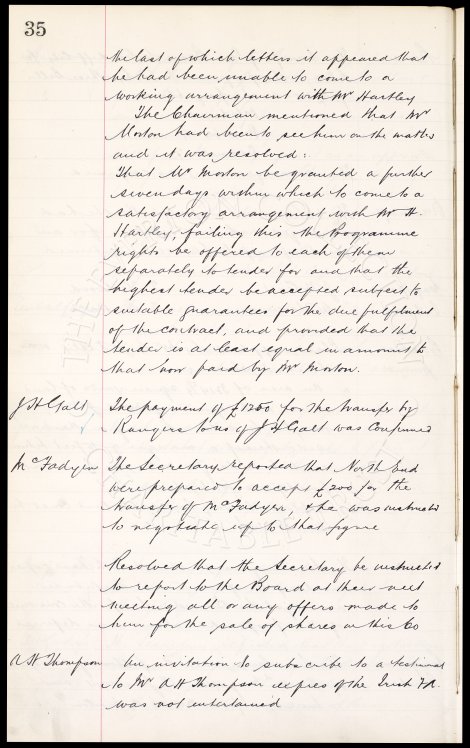 35
the last of which letters it appeared that
he had been unable to come to a
working arrangement with Mr Hartley
The Chairman mentioned that Mr
Morton had been to see him on the matter
and it was resolved:
That Mr Morton be granted a further
seven days within which to come to a
satisfactory arrangement with Mr H.
Hartley, failing this the Programme
rights be offered to each of them
separately to tender for and that the
highest tender be accepted subject to
suitable guarantees for the due fulfilment
of the contract, and provided that the
tender is at least equal in amount to
that now paid by Mr Morton.
J H Galt The payment of £1250 for the transfer by
Rangers to us of J H Galt was confirmed
McFadyen The Secretary reported that North End
were prepared to accept £200 for the
transfer of McFadyen, & he was instructed
to negotiate up to that figure
Resolved that the Secretary be instructed
to report to the Board at their next
meeting all or any offers made to
him for the sale of shares in this Co
A H Thompson An invitation to subscribe to a testimonial
to Mr A H Thompson expres of the Irish F.A.
was not entertained